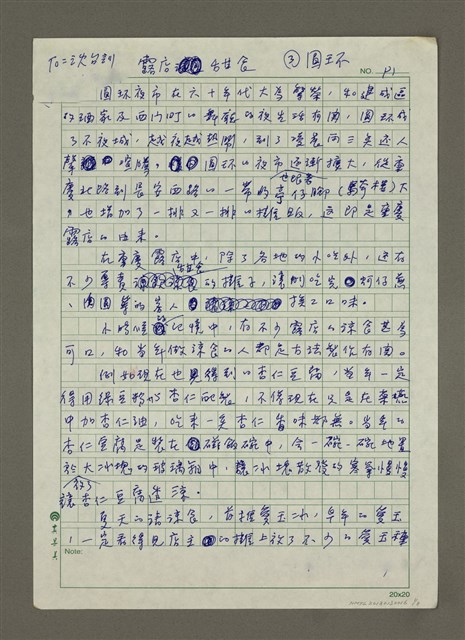 露店 甜食 ③ 圓環
NO. P1
圓環夜市在六十年代大為繁榮,和建成區
的酒家及西門町的舞廳的夜生活有關,圓環成
了不夜城,越夜越熱鬧,到了凌晨兩三點還人
聲喧騰。圓環的夜市逐漸擴大,從重
慶北路到長安西路的一帶的亭仔腳(騎樓)下
也跟著
,也增加了一排又一排的攤販,這即是重慶
露店的由來。
在重慶露店中,除了各地的小吃外,還有
不少專賣甜食的攤子,讓剛吃完蚵仔煎
、肉圓等的客人換口味。
小時候的記憶中,有不少露店的涼食甚為
可口,和當年做涼食的人都是古法製作有關。
例如現在也見得到的杏仁豆腐,當年一定
得用綠豆粉的杏仁配製,不像現在只是在菜燕
中加杏仁油,吃來一點杏仁香味都無。當年的
杏仁豆腐是裝在磁的碗中,令一碗一碗地置
於大冰塊的玻璃箱中,讓冰塊散發的寒氣慢慢
讓杏仁豆腐透涼。
夏天的涼食,首推愛玉冰,早年的愛玉
,一定看得見店主的攤上放了不少的愛玉種
Note:
20x20